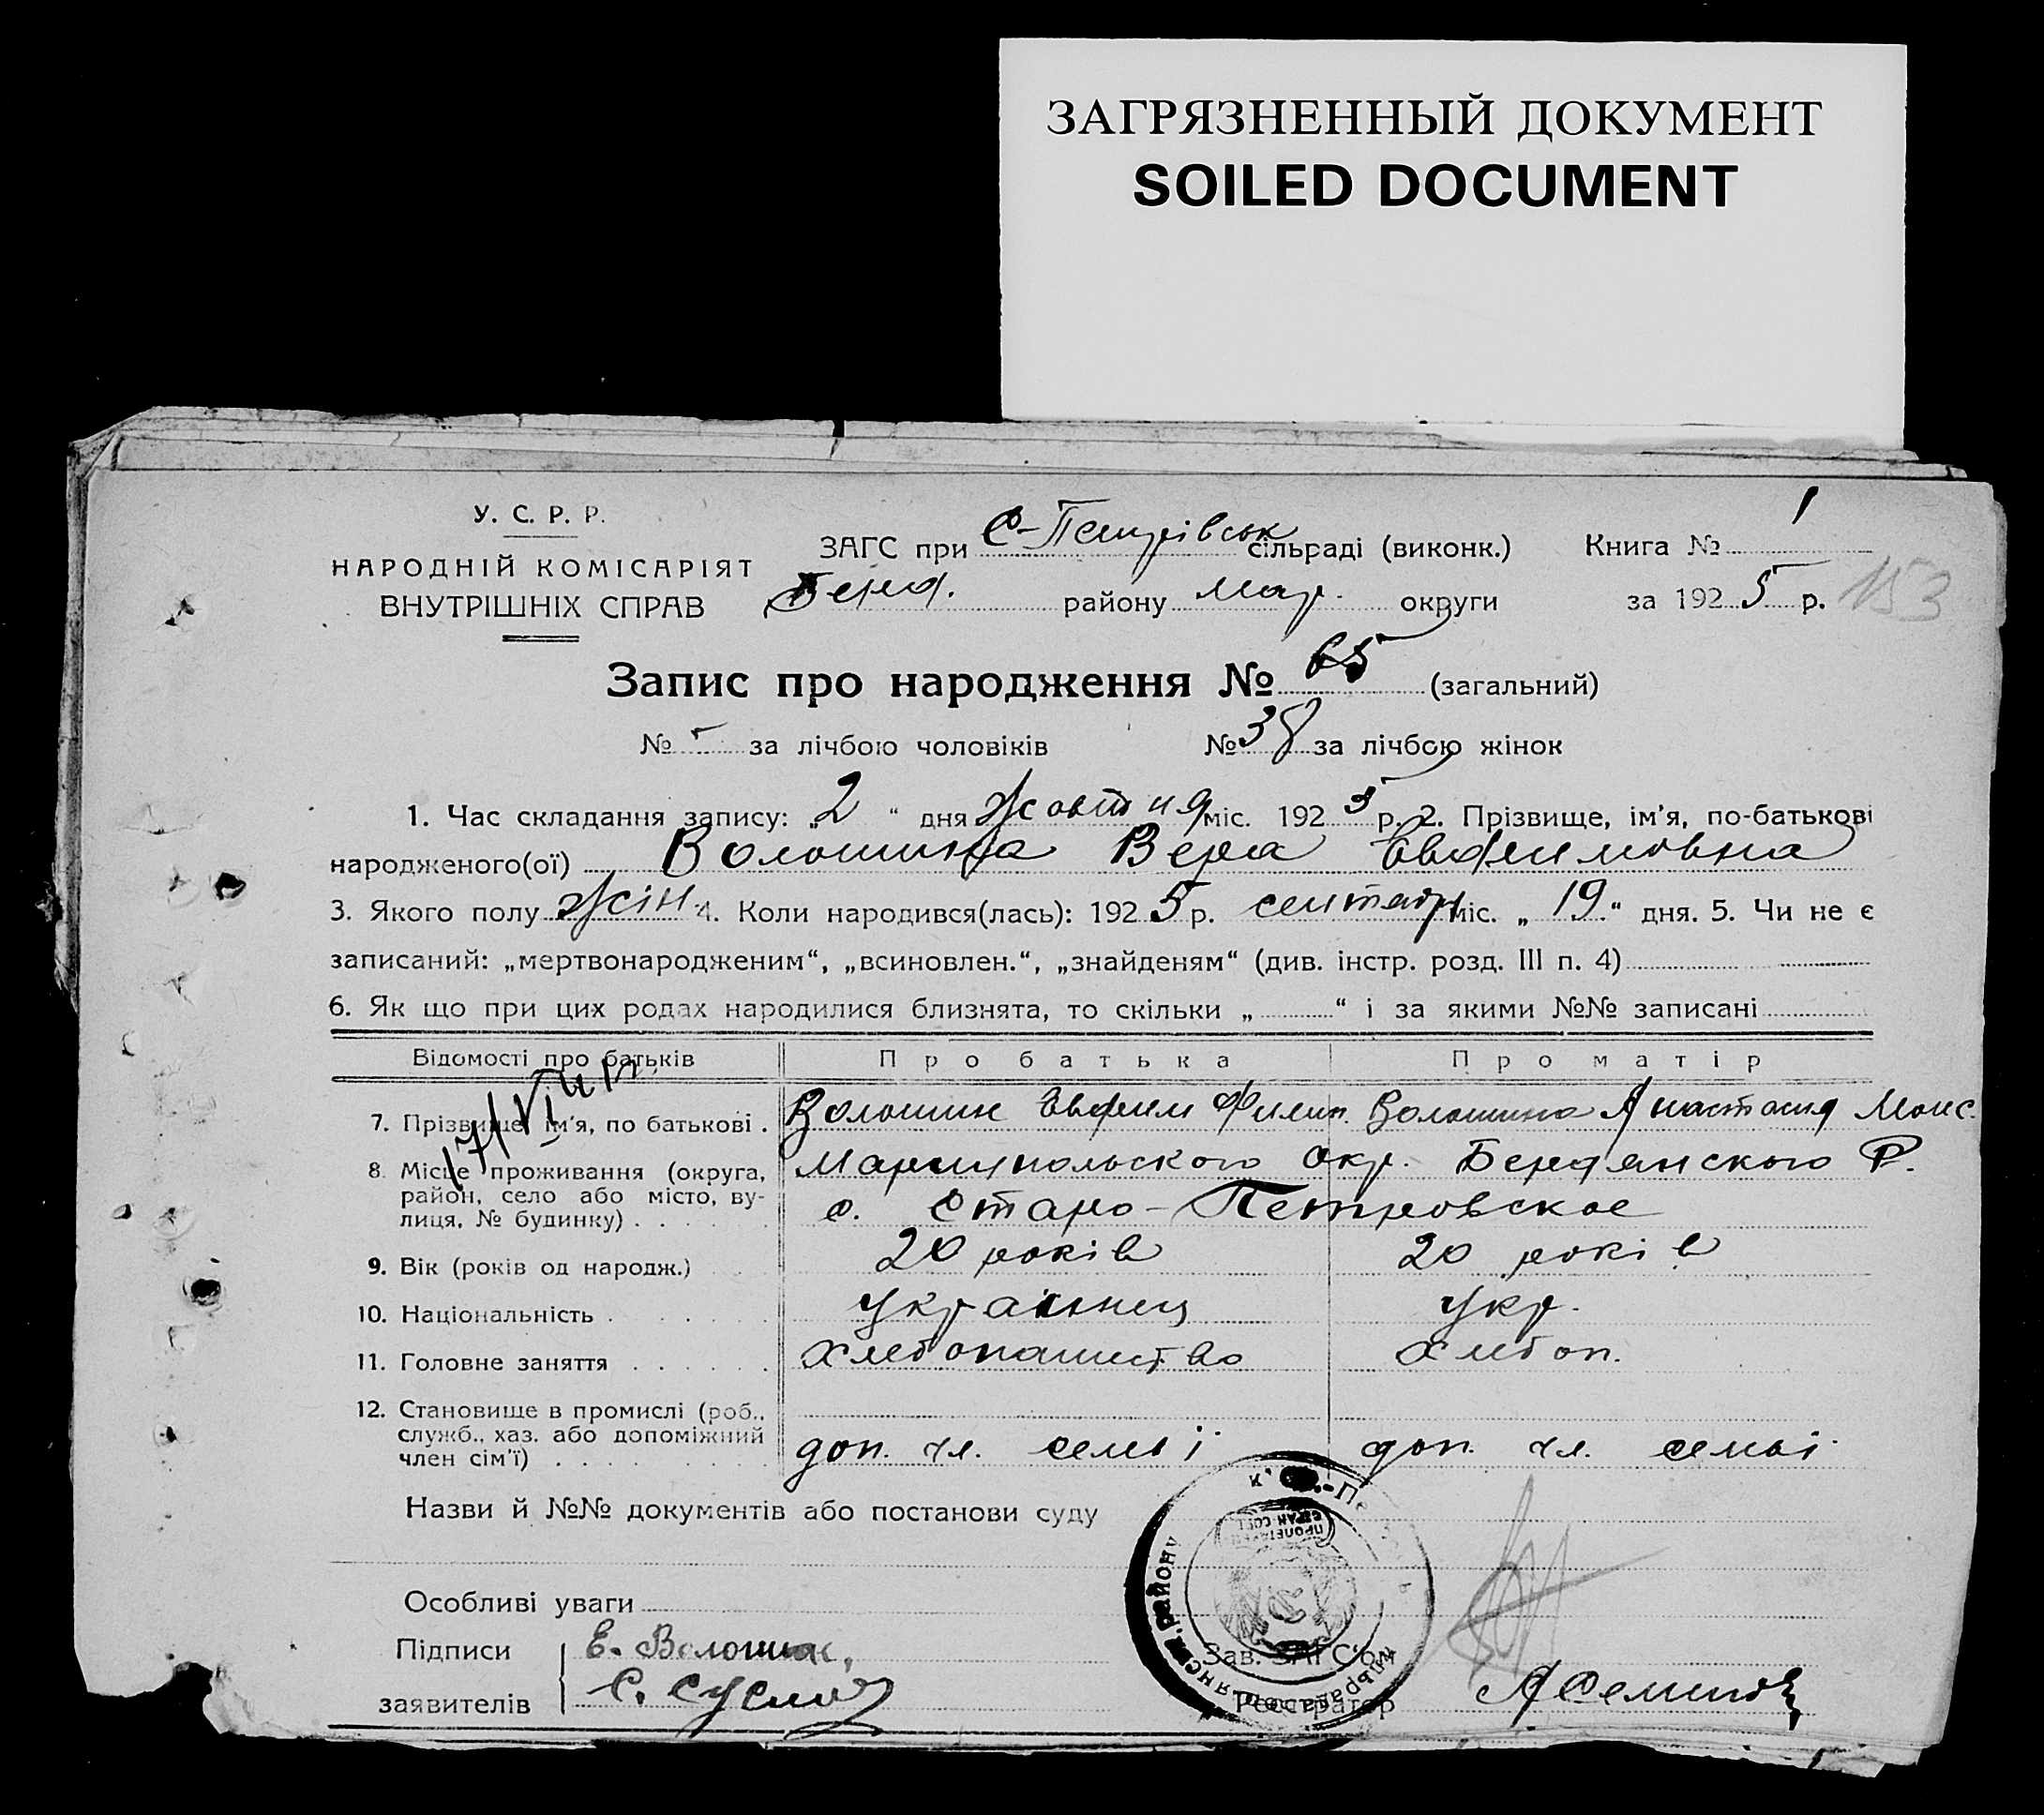 ЗАГРЯЗНЕННЫЙ ДОКУМЕНТ
SOILED DOCUMENT
У. С. Р. Р.
НАРОДНІЙ КОМІСАРІЯТ
ВНУТРІШНІХ СПРАВ
ЗАГС при С-Петрівськ сільраді (виконк.) Книга № 1
Берд. району Мар. округи за 1925 р. 153
Запис про народження № 65 (загальний)
№ - за лічбою чоловіків № 38 за лічбою жінок
1. Час складання запису: „2“ дня Жовтня міс. 1925 р. 2. Прізвище, ім'я, по-батькові
народженого(ої) Волошина Вера Евфимовна
3. Якого полу жін. 4. Коли народився(лась): 1925 р. сентябр міс. „19“ дня. 5. Чи не є
записаний: „мертвонародженим“, „всиновлен.“, „знайденям“ (див. інстр. розд. III п. 4)
6. Як що при цих родах народилися близнята, то скільки „ “ і за якими №№ записані
Відомості про батьків Про батька Про матір
7. Прізвище, ім'я, по батькові . Волошин Евфим Филип. Волошина Анастасия Моис.
8. Місце проживання (округа, район, село або місто, вулиця, № будинку) Мариупольского Окр. Бердянского Р.
с. Старо-Петровское
9. Вік (років од народж.) 20 років 20 років
10. Національність украінец укр.
11. Головне заняття хлебопашество хлебоп.
12. Становище в промислі (роб.,
служб., хаз. або допоміжний
член сім'ї) доп. чл. семьі доп. чл. семьі
Назви й №№ документів або постанови суду
Особливі уваги
Підписи Е. Волошин,
Зав. ЗАГС'ом
заявителів С. Суслов
Реєстратор